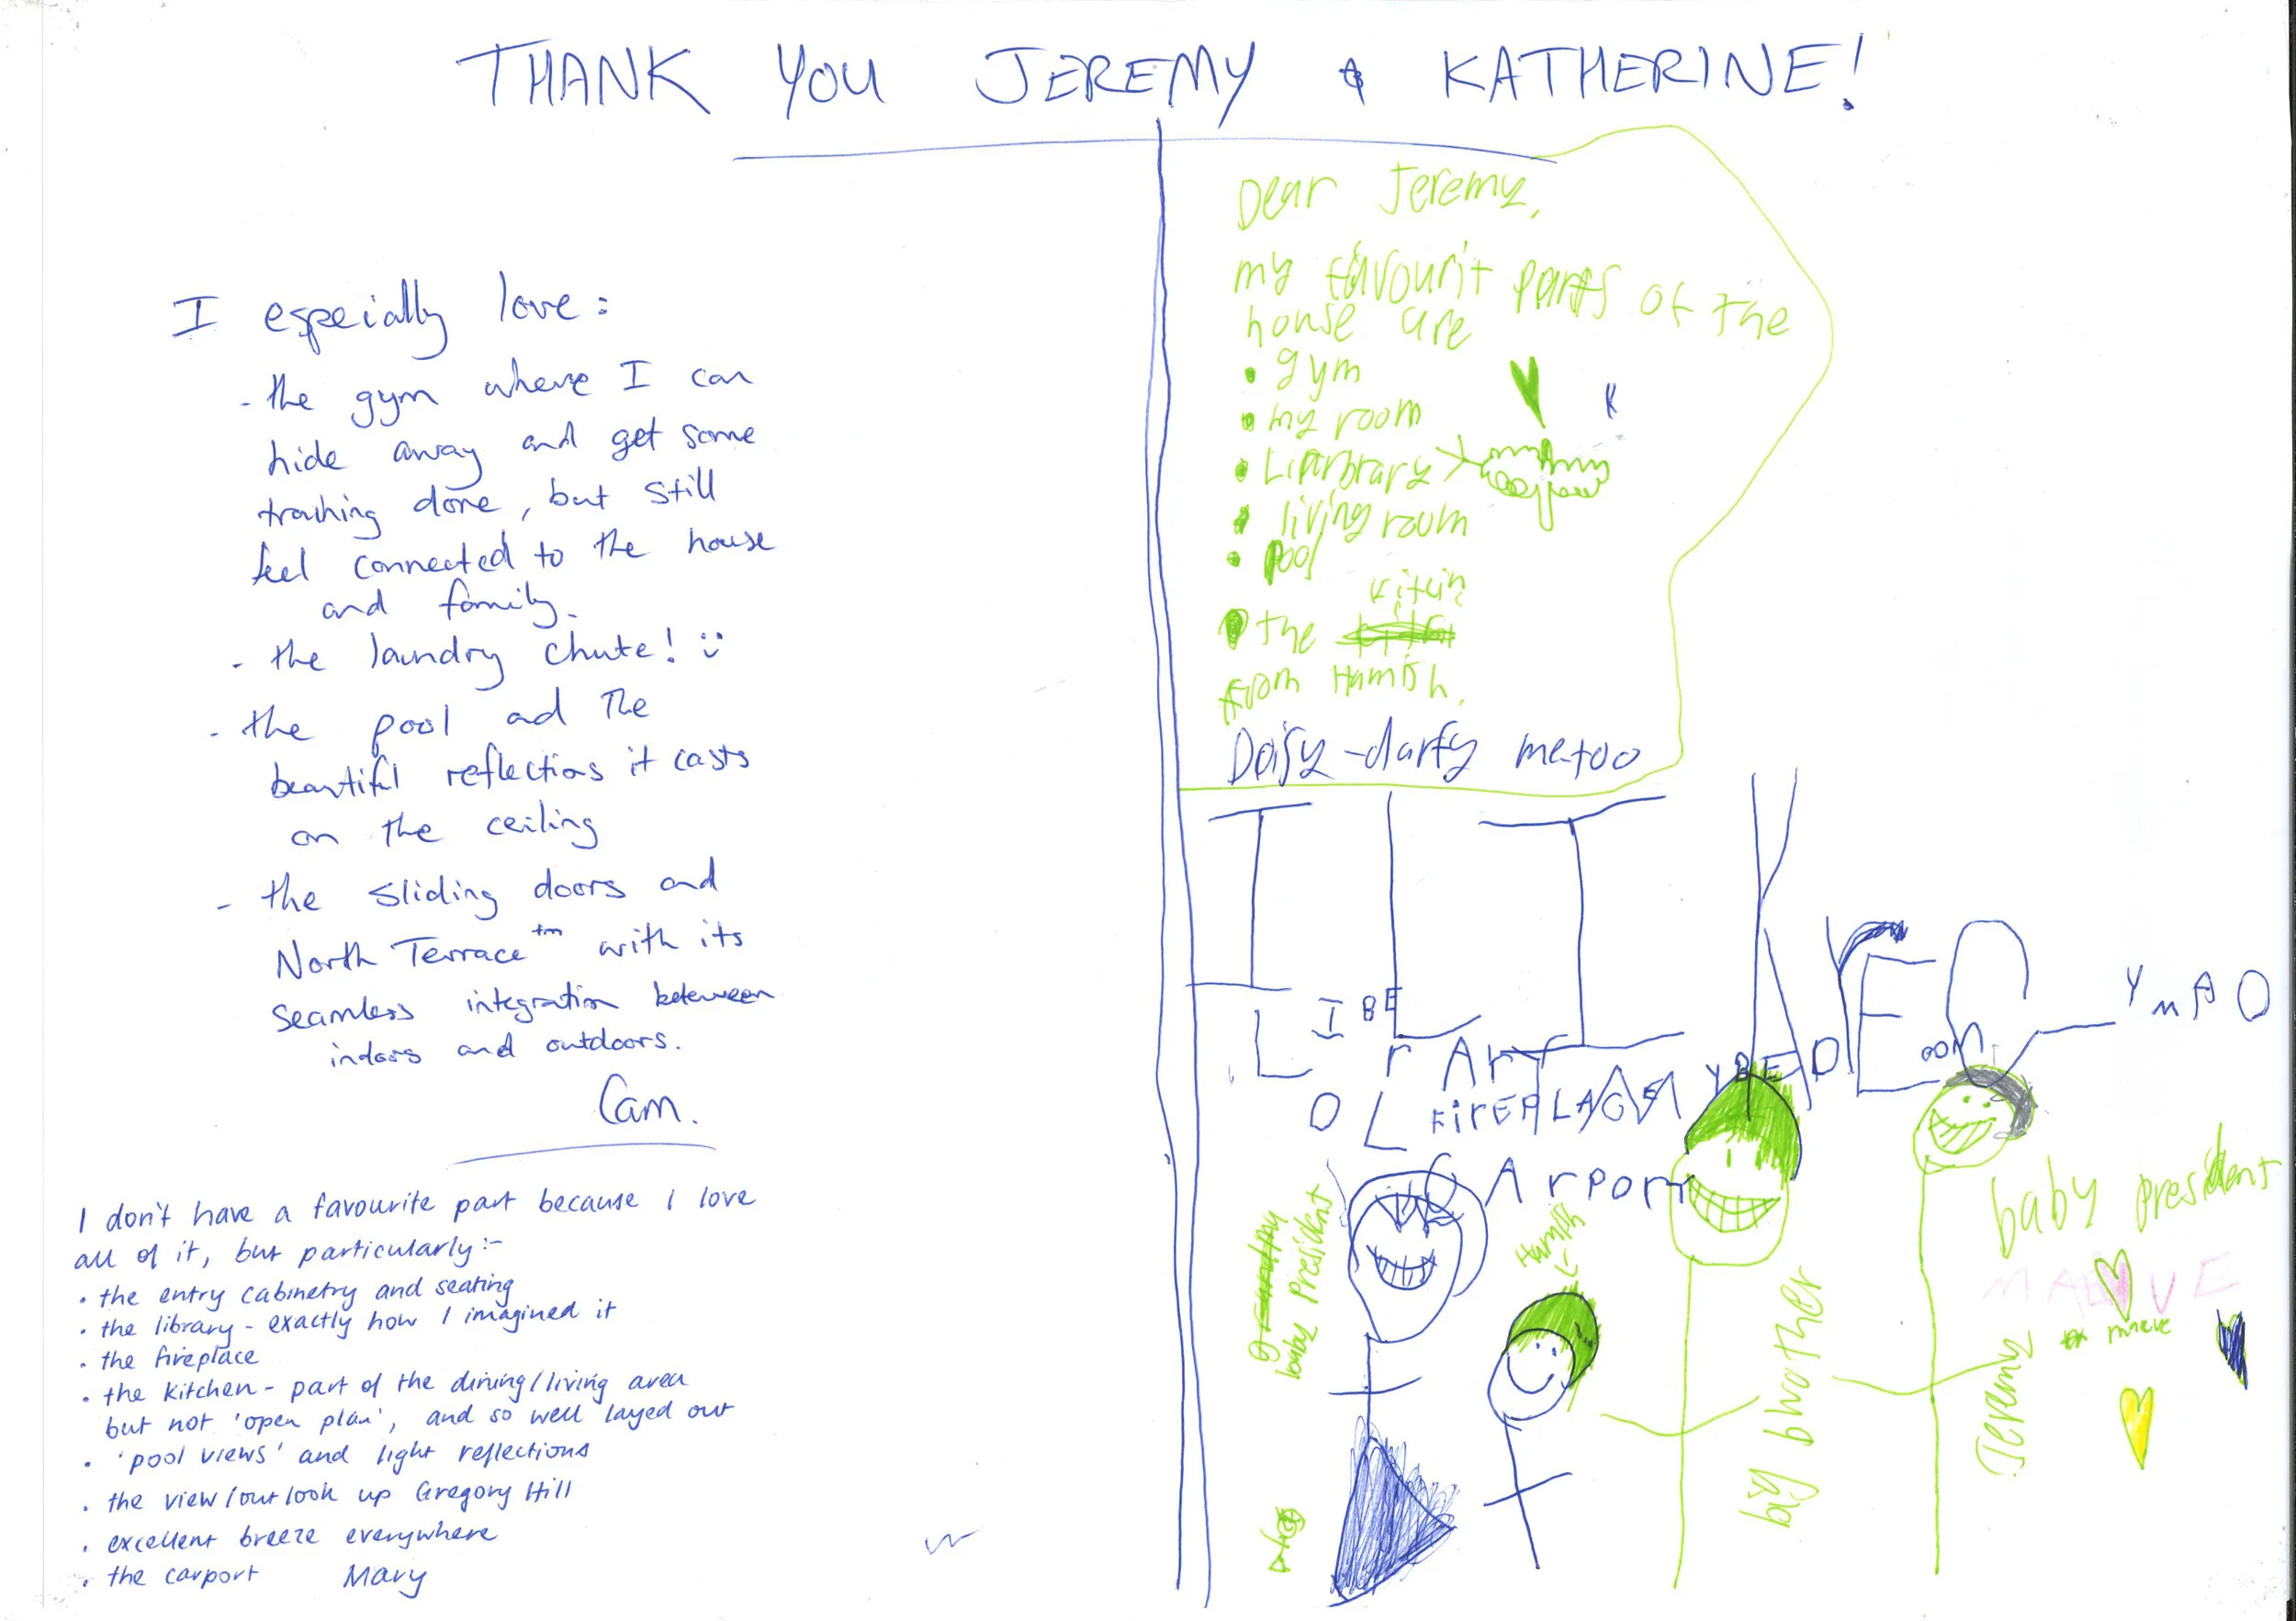 THANK YOU JEREMY & KATHERINE!
I especially love:
- the gym where I can
hide away and get some
training done, but still
feel connected to the house
and family.
- the laundry chute! :)
- the pool and the
beautiful reflections it casts
on the ceiling
- the sliding doors and
North Terrace™ with its
seamless integration between
indoors and outdoors.
Cam.
I don't have a favourite part because I love
all of it, but particularly:-
• the entry cabinetry and seating
• the library - exactly how I imagined it
• the fireplace
• the kitchen - part of the dining/living area
but not 'open plan', and so well layed out
• 'pool views' and light reflections
• the view/outlook up Gregory Hill
• excellent breeze everywhere
• the carport Mary
Dear Jeremy,
my favourit parts of the
house are
• gym
• my room
• Liarbrary
• living room
• pool
• the kitcin
from Hamish.
Daisy-darfy me too
I LIKE
LIBErArY
FirEPLACE
MYBEDrOOM
CArPort
baby President
Hamish
big brother
baby president
Jeremy
MAEVE
maeve